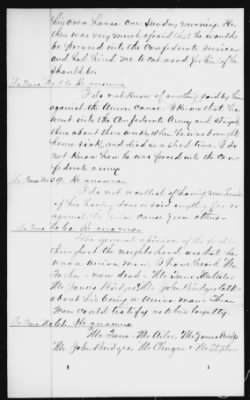 my own house one Sunday morning. He
then was very much afraid that he would
be pressed into the Confederate service
and had hired me to cut wood for him if he
should be
To Ques No He answers
I do not know of anything said by him
against the Union cause I know that he
went into the Confederate Army and stayed
there about three weeks, when he was brought
home sick, and died in a short time. I do
not know how he was forced into the con-
federate army
To Ques No 59. He answers
I do not
of his having done or said anything for or
against the Union cause from others
To Ques No 60. He answers
The general opinion of the people
throughout the neighborhood was that he
was a Union man. I have heard Mr.
now dead. Mr
Mr James Bridges, Mr John Bridges talk
about his being a Union man. These
men could testify as to his loyalty.
To Ques No 61. He answers
Mr Mr James Bridges
Mr. John Bridges, Mr